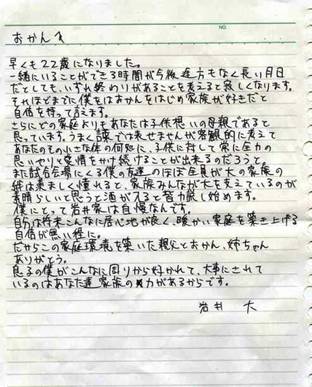 NO.
おかんへ
早くも22歳になりました。
一緒にいることができる時間が今後途方もなく長い月日
だとしても、いずれ終わりがあることを考えると寂しくなります。
それほどまでに僕をはおかんをはじめ家族が好きだと
自信を持って言えます。
さらにどの家庭よりもあなたは子供想いの母親であると
思っています。うまく諭では表せませんが客観的に考えて
あなたの小さな体の何処に、子供に対して常に全力の
思いやりと愛情をかけ続けることが出来るのだろうと。
また試合会場にくる僕の友達のほぼ全員が大の家族の
絆は羨ましく憧れると、家族みんなが大を支えているのが
素晴らしいと思うと酒が入ると皆力説し始めます。
僕にとって岩井家は自慢なんです。
自分は将来こんなに居心地が良く、暖かい家庭を築き上げる
自信が無い程に。
だからこの家庭環境を築いた親父とおかん、姉ちゃん
ありがとう。
思うの僕がこんなに回りから好かれて、大事にされて
いるのはあなた達家族の力があるからです。
岩井 大